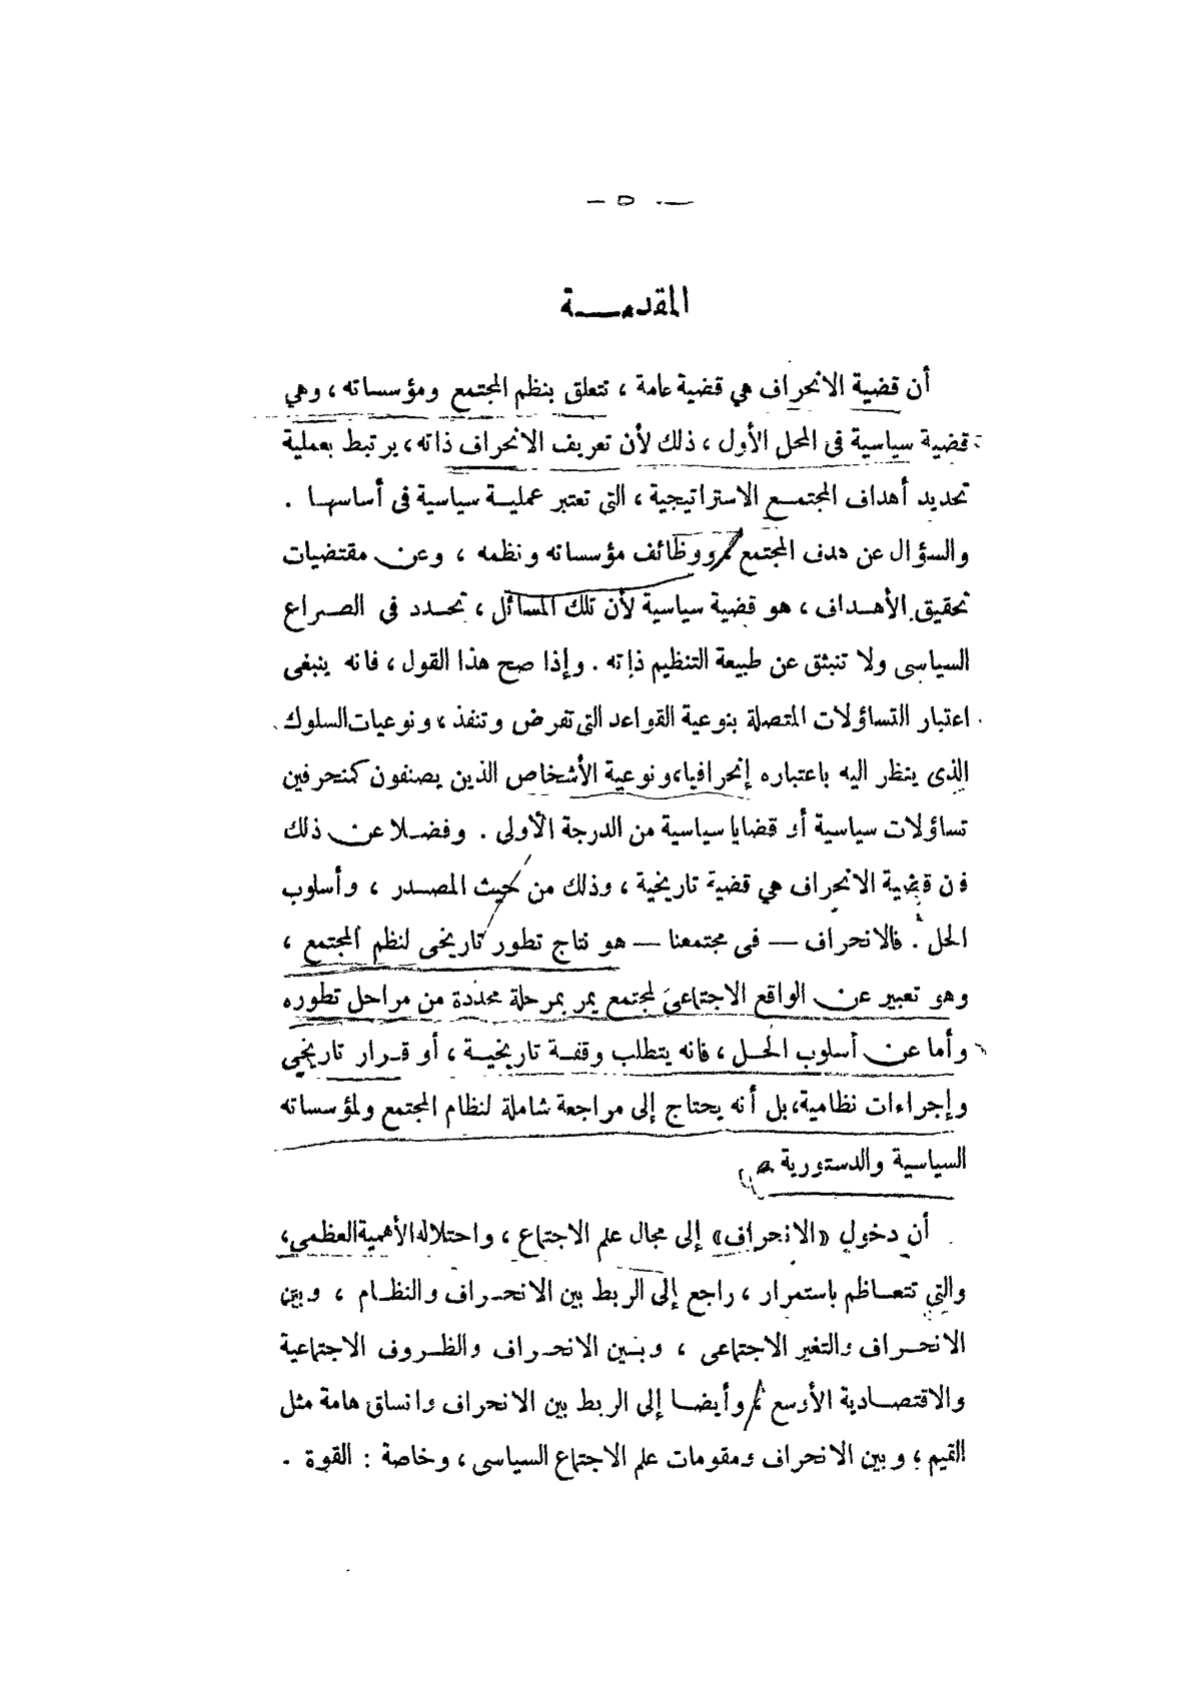 — ٥ —
المقدمـــة
أن قضية الانحراف هي قضية عامة ، تتعلق بنظم المجتمع ومؤسساته ، وهي
قضية سياسية فى المحل الأول ، ذلك لأن تعريف الانحراف ذاته ، يرتبط بعملية
تحديد أهداف المجتمـــع الاستراتيجية ، التى تعتبر عمليـــة سياسية فى أساسهـا .
والسؤال عن هدف المجتمع ووظائف مؤسساته ونظمه ، وعن مقتضيات
تحقيق الأهـداف ، هو قضية سياسية لأن تلك المسائل ، تحـدد فى الصـراع
السياسى ولا تنبثق عن طبيعة التنظيم ذاته . وإذا صح هذا القول ، فانه ينبغى
اعتبار التساؤلات المتصلة بنوعية القواعد التى تفرض وتنفذ ، ونوعيات السلوك
الذى ينظر اليه باعتباره إنحرافيا ، ونوعية الأشخاص الذين يصنفون كمنحرفين
تساؤلات سياسية أو قضايا سياسية من الدرجة الأولى . وفضـلا عن ذلك
فان قضية الانحراف هي قضية تاريخية ، وذلك من حيث المصـدر ، وأسلوب
الحل . فالانحراف — فى مجتمعنا — هو نتاج تطور تاريخى لنظم المجتمع ،
وهو تعبير عن الواقع الاجتماعى لمجتمع يمر بمرحلة محددة من مراحل تطوره
وأما عن أسلوب الحـل ، فانه يتطلب وقفـة تاريخيـة ، أو قـرار تاريخي
وإجراءات نظامية ، بل أنه يحتاج إلى مراجعة شاملة لنظام المجتمع ولمؤسساته
السياسية والدستورية
أن دخول «الانحراف» إلى مجال علم الاجتماع ، واحتلاله الأهمية العظمى ،
والتى تتعـاظم باستمرار ، راجع إلى الربط بين الانحـراف والنظـام ، وبين
الانحـراف والتغير الاجتماعى ، وبـين الانحـراف والظـروف الاجتماعية
والاقتصـادية الأوسع وأيضـا إلى الربط بين الانحراف وانساق هامة مثل
القيم ، وبين الانحراف ومقومات علم الاجتماع السياسى ، وخاصة : القوة .